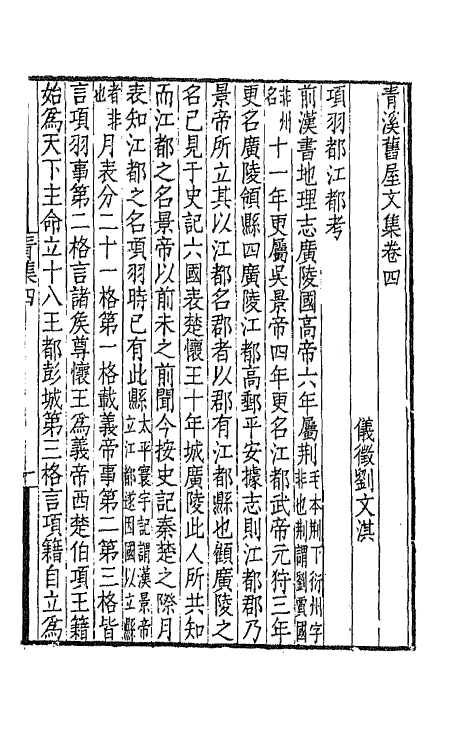 青溪舊屋文集卷四
儀徵劉文淇
項羽都江都考
前漢書地理志廣陵國高帝六年屬荆毛本荆下衍州字非也荆謂劉賈國
非州名十一年更屬吳景帝四年更名江都武帝元狩三年
更名廣陵領縣四廣陵江都高郵平安據志則江都郡乃
景帝所立其以江都名郡者以郡有江都縣也顧廣陵之
名已見于史記六國表楚懷王十年城廣陵此人所共知
而江都之名景帝以前未之前聞今按史記秦楚之際月
表知江都之名項羽時已有此縣太平寰宇記謂漢景帝立江都遂因國以立縣
者非也月表分二十一格第一格載義帝事第二第三格皆
言項羽事第二格言諸矦尊懷王爲義帝西楚伯項王籍
始爲天下主命立十八王都彭城第三格言項籍自立爲
青集四
一